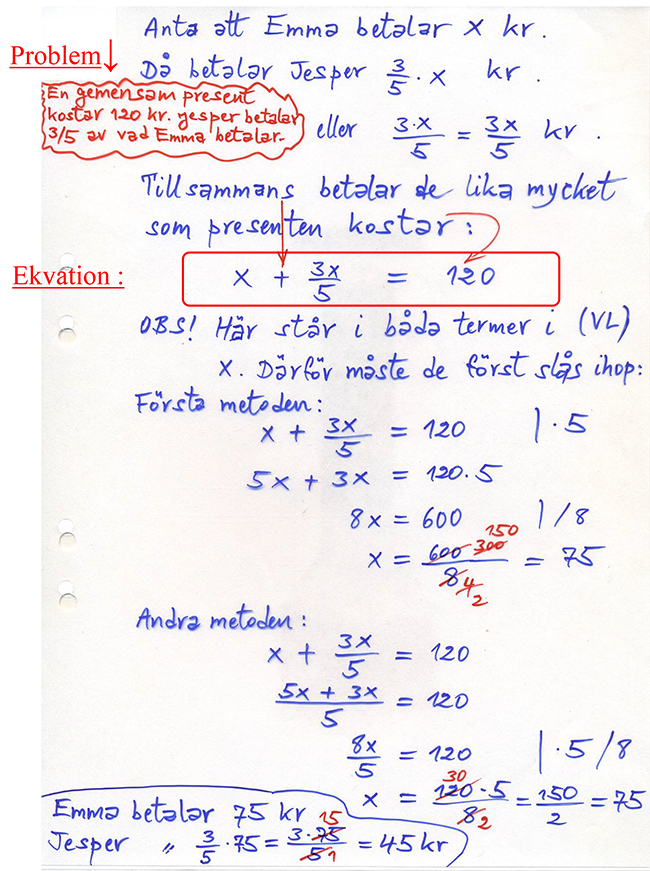 Anta att Emma betalar x kr.
Problem↓
Då betalar Jesper 3/5 · x kr.
En gemensam present
kostar 120 kr. Jesper betalar
3/5 av vad Emma betalar.
eller 3·x/5 = 3x/5 kr.
Tillsammans betalar de lika mycket
som presenten kostar:
Ekvation :
x + 3x/5 = 120
OBS! Här står i båda termer i (VL)
x. Därför måste de först slås ihop:
Första metoden:
x + 3x/5 = 120 | · 5
5x + 3x = 120·5
8x = 600 | /8
x = 600 300 150 / 8 4 2 = 75
Andra metoden:
x + 3x/5 = 120
5x + 3x / 5 = 120
8x/5 = 120 | · 5 /8
x = 120 30 · 5 / 8 2 = 150/2 = 75
Emma betalar 75 kr
Jesper „ 3/5 · 75 = 3·75 15 / 5 1 = 45 kr